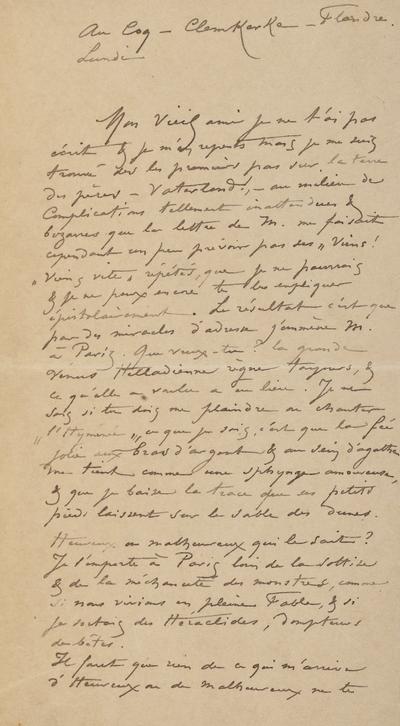 Au Coq – Clemskerke – Flandre.
Lundi
Mon Vieil ami je ne t'ai pas
écrit & je m'en repens mais je me suis
trouvé dès les premiers pas sur la terre
des pères – Vaterland, – au milieu de
Complications tellement inattendues &
bizarres que la lettre de M. me faisait
cependant un peu prévoir par ses „ Viens!
„ Viens vite", répétés, que je ne pourrais
& je ne peux encore te les expliquer
épistolairement. Le résultat c'est que
par des miracles d'adresse j'emmène M.
à Paris. Que veux-tu? la grande
Vénus Helladienne règne toujours, &
ce qu'elle a voulu a eu lieu. Je ne
sais si tu dois me plaindre ou chanter
„ l'Hyménée „ ce que je sais, c'est que la fée
jolie aux bras d'argent & au sein d'agathe
me tient comme une sphynge amoureuse,
& que je baise la trace que ses petits
pieds laissent sur le sable des dunes.
Heureux ou malheureux qui le sait?
Je l'emporte à Paris loin de la sottise
& de la méchanceté des monstres, comme
si nous vivions en pleine Fable, & si
je sortais des Héraclides, dompteurs
de bêtes.
Il faut que rien de ce qui m'arrive
d'Heureux ou de malheureux ne te